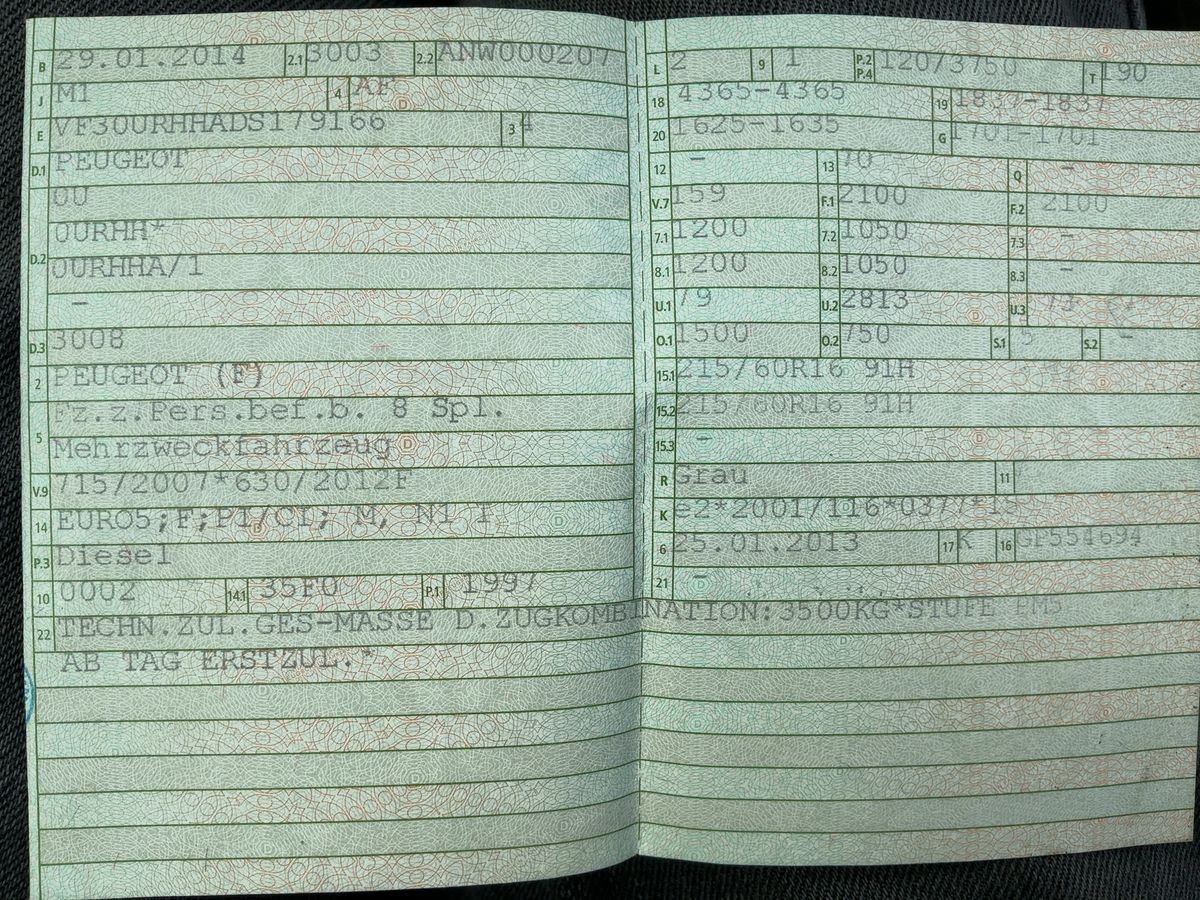 B 29.01.2014 2.1 3003 2.2 ANW000207
J M1 4 AF
E VF30URHHADS179166 3 4
D.1 PEUGEOT
0U
D.2 0URHH*
0URHHA/1
-
D.3 3008
2 PEUGEOT (F)
5 Fz.z.Pers.bef.b. 8 Spl.
Mehrzweckfahrzeug
V.9 715/2007*630/2012F
14 EURO5;F;PI/CI; M, N1 I
P.3 Diesel
10 0002 14.1 35F0 P.1 1997
L 2 9 1 P.2 P.4 120/3750 T 190
18 4365-4365 19 1837-1837
20 1625-1635 G 1701-1701
12 - 13 70 Q -
V.7 159 F.1 2100 F.2 2100
7.1 1200 7.2 1050 7.3 -
8.1 1200 8.2 1050 8.3 -
U.1 79 U.2 2813 U.3
O.1 1500 O.2 750 S.1 5 S.2 -
15.1 215/60R16 91H
15.2 215/60R16 91H
15.3 -
R Grau 11
K e2*2001/116*0377*
6 25.01.2013 17 K 16 GP554694
21 -
22 TECHN.ZUL.GES-MASSE D.ZUGKOMBINATION:3500KG*STUFE PM5
AB TAG ERSTZUL.*